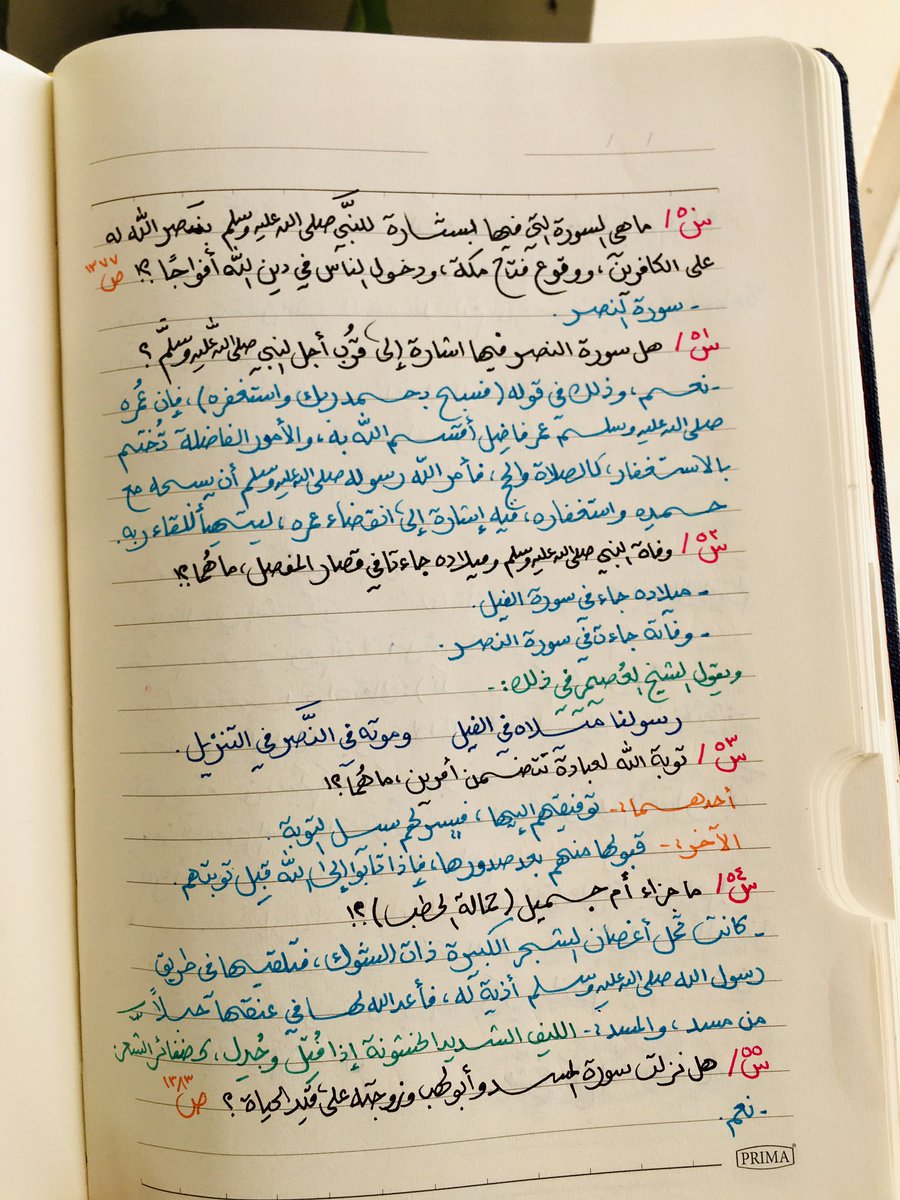 س٥٠/ ما هي السورة التي فيها بشارة للنَّبيِّ صلى الله عليه وسلم بنصر الله له
على الكافرين، ووقوع فتح مكة، ودخول الناس في دين الله أفواجًا؟! ص١٣٧٧
- سورة النصر.
س٥١/ هل سورة النصر فيها اشارة إلى قُرب أجل النبي صلى الله عليه وسلَّم؟
- نعم، وذلك في قوله (فسبح بحمد ربك واستغفره)، فإن عُمره
صلى الله عليه وسلم عمر فاضل أقسم الله به، والأمور الفاضلة تُختم
بالاستغفار، كالصلاة والحج، فأمر الله رسوله صلى الله عليه وسلم أن يسبحه مع
حمده واستغفاره، فيه إشارة إلى انقضاء عمره، ليتهيأ للقاء ربه.
س٥٢/ وفاة النبي صلى الله عليه وسلم وميلاده جاءتا في قصار المفصل، ما هُما؟!
- ميلاده جاء في سورة الفيل.
- وفاته جاءت في سورة النصر.
ويقول الشيخ العُصيمي في ذلك:-
رسولنا ميلاده في الفيل وموته في النَّصر في التنزيل.
س٥٣/ توبة الله لعباده تتضمن أمرين، ما هُما؟!
أحدهما:- توفيقهم إليها، فييسر لهم سبل التوبة.
الآخر:- قبولها منهم بعد صدورها، فإذا تابوا إلى الله قبل توبتهم.
س٥٤/ ما جزاء أم جميل (حمالة الحطب)؟!
- كانت تحمل أغصان الشجر الكبيرة ذات الشوك، فتلقيها في طريق
رسول الله صلى الله عليه وسلم أذية له، فأعد الله لها في عنقها حبلاً
من مسد، والمسد:- الليف الشديد الخشونة إذا فُتل وجُدل، كضفائر الشَّعر.
س٥٥/ هل نزلت سورة المسد وأبو لهب وزوجته على قيد الحياة؟ ص١٣٨٣
- نعم.
PRIMA